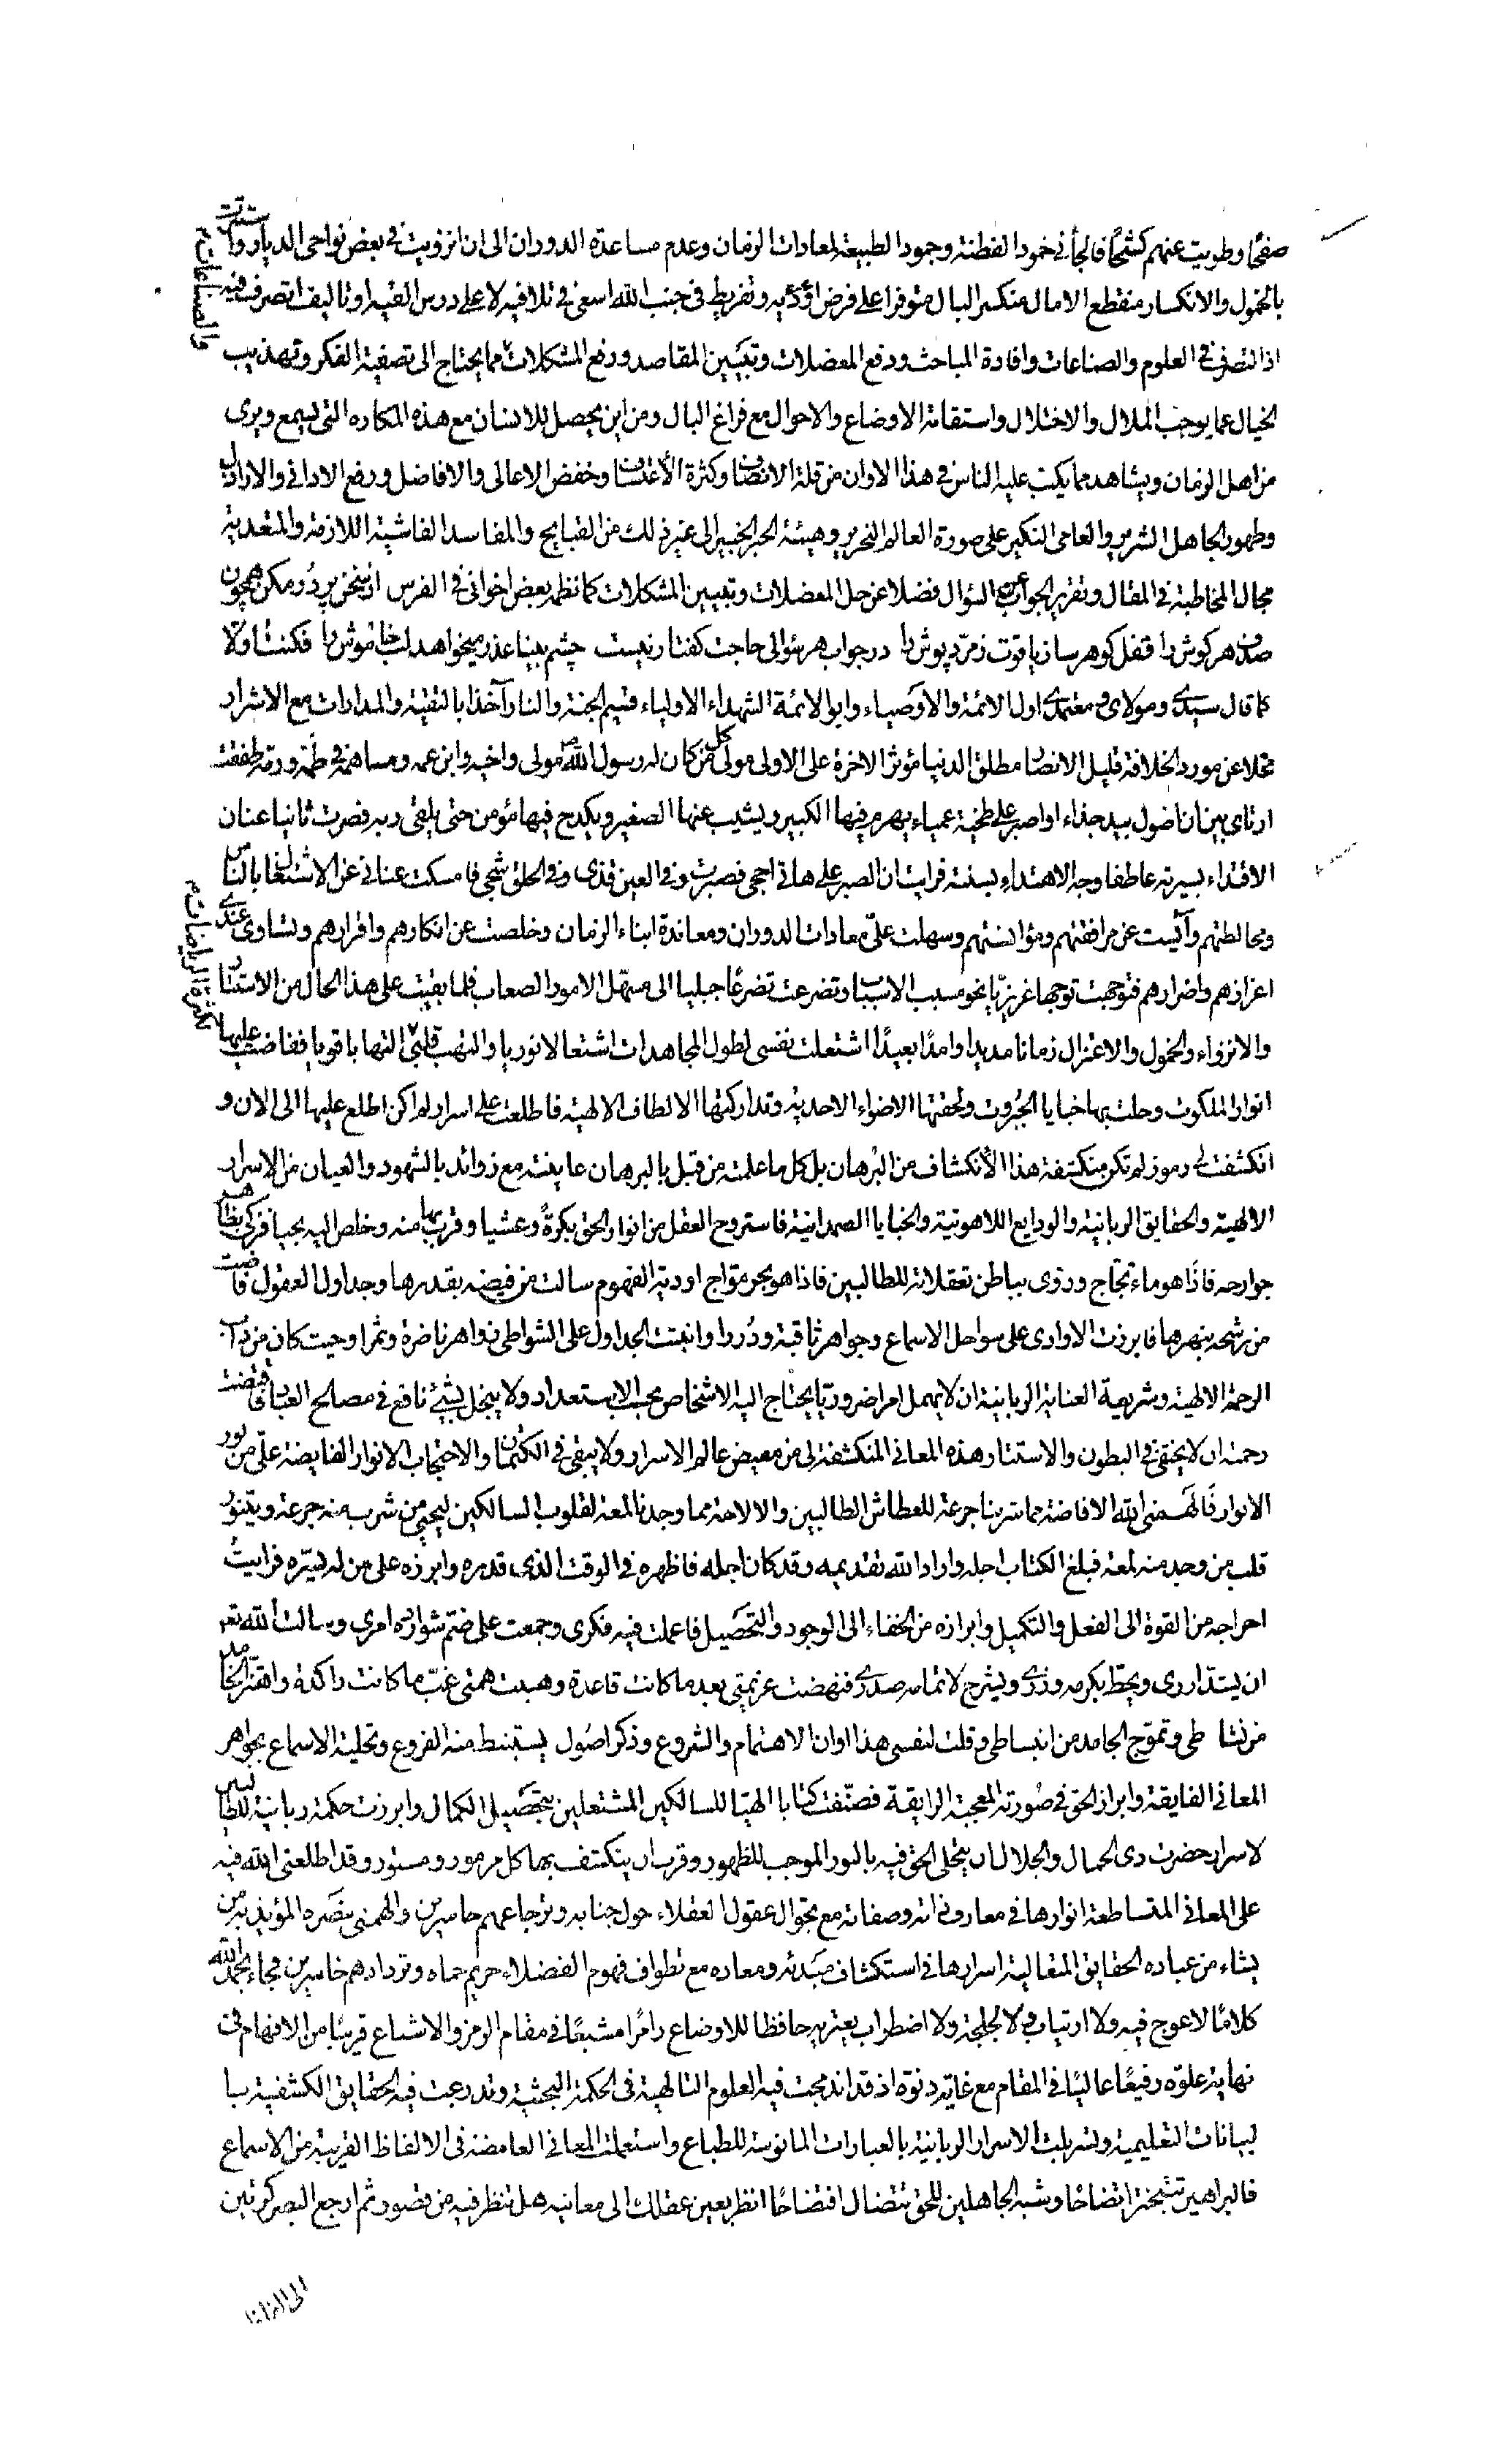 صفحًا وطويت عنهم كشحًا فالجأنى خمود الفطنة وجمود الطبيعة لمعادات الزمان وعدم مساعدة الدوران الى ان انزويت فى بعض نواحى الديار واستترت
بالخمول والانكسار منقطع الامال منكسر البال متوفرا على فرض اؤديه وتفريط فى جنب الله اسعى فى تلافيه لا على درس القيه او تاليف اتصرف فيه
اذ التصرف فى العلوم والصناعات وافادة المباحث ودفع المعضلات وتبيين المقاصد ورفع المشكلات مما يحتاج الى تصفية الفكر وتهذيب
الخيال عما يوجب الملال والاختلال واستقامة الاوضاع والاحوال مع فراغ البال ومن اين يحصل للانسان مع هذه المكاره التى يسمع ويرى
من اهل الزمان ويشاهد مما يكب عليه الناس فى هذا الاوان من قلة الانصاف وكثرة الاعتساف وخفض الاعالى والافاضل ورفع الادانى والاراذل
وظهور الجاهل الشرير والعامى النكير على صورة العالم النحرير وهيئة الحبر الخبير الى غير ذلك من القبايح والمفاسد الفاشية اللازمة والمتعدية
مجال المخاطبة فى المقال وتقرير الجواب عن السؤال فضلا عن حل المعضلات وتبيين المشكلات كما نظمه بعض اخوانى فى الفرس از سخن پر در مكن همچون
صدف هر گوش را قفل گوهر ساز ياقوت زمرد پوش را در جواب هر سؤالى حاجت گفتار نيست چشم بينا عذر ميخواهد لب خاموش را فكنت اولا
كما قال سيدى ومولاى ومعتمدى اول الائمة والاوصياء وابو الائمة الشهداء الاولياء قسيم الجنة والنار آخذا بالتقية والمدارات مع الاشرار
مخلا عن مورد الخلافة قليل الانصار مطلق الدنيا مؤثر الاخرة على الاولى مولى كل من كان له رسول الله ص مولى واخيه وابن عمه ومساهمه فى طمه ورمه طفقت
ارتاى بين ان اصول بيد جذاء او اصبر على طخية عمياء يهرم فيها الكبير ويشيب عنها الصغير ويكدح فيها مؤمن حتى يلقى ربه فصرت ثانيا عنان
الاقتداء بسيرته عاطفا وجه الاهتداء بسنته فرايت ان الصبر على هاتى احجى فصبرت وفى العين قذى وفى الحلق شجى فامسكت عنانى عن الاشتغال بالناس
ومخالطتهم وآيست عن مرافقتهم ومؤانستهم وسهلت علىّ معادات الدوران ومعاندة ابناء الزمان وخلصت عن انكارهم واقرارهم وتساوى عندى
اعزازهم واضرارهم فتوجهت توجها غريزيا نحو مسبب الاسباب وتضرعت تضرعا جبليا الى مسهّل الامور الصعاب فلما بقيت على هذا الحال من الاستتار
والانزواء والخمول والاعتزال زمانا مديدا وامدًا بعيدًا اشتعلت نفسى لطول المجاهدات اشتعالا نوريا والتهب قلبى التهابا قويا ففاضت عليها
بكثرة الرياضات م
انوار الملكوت وحلت بها خبايا الجبروت ولحقتها الاضواء الاحدية وتداركتها الالطاف الالهية فاطلعت على اسرار لم اكن اطلع عليها الى الان و
انكشفت لى رموز لم تكن منكشفة هذا الانكشاف من البرهان بل كل ما علمته من قبل بالبرهان عاينته مع زوائد بالشهود والعيان من الاسرار
الالهية والحقايق الربانية والودايع اللاهوتية والخبايا الصمدانية فاستروح العقل من انوار الحق بكرةً وعشيا وقرب بها منه وخلص اليه نجيا فزكى بظاهر
جوارحه فاذا هو ماء ثجاج وروى بباطن تعقلاته للطالبين فاذا هو بحر مواج اودية الفهوم سالت من فيضه بقدرها وجداول العقول فاضت
من رشحه بنهرها فابرزت الاوادى على سواحل الاسماع وجواهر ثاقبة ودررا وانبتت الجداول على الشواطى زواهر ناضرة وثمرا وحيث كان من داب
الرحمة الالهية وشريعة العناية الربانية ان لا يهمل امرا ضروريا يحتاج اليه الاشخاص بحسب الاستعداد ولا يبخل بشيئ نافع فى مصالح العباد فاقتضت
رحمته ان لا يختفى فى البطون والاستتار هذه المعانى المنكشفة لى من مفيض عالم الاسرار ولا يبقى فى الكتمان والاحتجاب الانوار الفايضة علىّ من نور
الانوار فالهمنى الله الافاضة مما شربنا جرعة للعطاش الطالبين والالاحة مما وجدنا لمعة لقلوب السالكين ليحيى من شرب منه جرعة ويتنور
قلب من وجد منه لمعة فبلغ الكتاب اجله واراد الله تقديمه وقد كان اجله فاظهره فى الوقت الذى قدره وابرزه على من له يسره فرايت
اخراجه من القوة الى الفعل والتكميل وابرازه من الخفاء الى الوجود والتحصيل فاعملت فيه فكرى وجمعت على ضم شوارده امرى وسالت الله تعم
ان يشد ازرى ويحط بكرمه وزرى ويشرح لاتمامه صدرى فنهضت عزيمتى بعد ما كانت قاعدة وهبت همتى غبّ ما كانت راكدة واهتز الخامد
من نشاطى وتموج الجامد من انبساطى وقلت لنفسى هذا اوان الاهتمام والشروع وذكر اصول يستنبط منه الفروع وتحلية الاسماع بجواهر
المعانى الفايقة وابراز الحق فى صورته المعجبة الرايقة فصنفت كتابا الهيا للسالكين المشتغلين بتحصيل الكمال وابرزت حكمة ربانية للطالبين
لاسرار حضرت ذى الجمال والجلال ان يتجلى الحق فيه بالنور الموجب للظهور وقرب ان ينكشف بها كل مرموز ومستور وقد اطلعنى الله فيه
على المعانى المتساطعة انوارها فى معارف ذاته وصفاته مع تجوال عقول العقلاء حول جنابه وترجاعهم حاسرين والهمنى بنصره المؤيد به من
يشاء من عباده الحقايق المتعالية اسرارها فى استكشاف مبدئه ومعاده مع تطواف فهوم الفضلاء حريم حماه وتردادهم خاسرين فجاء بحمد الله
كلامًا لا عوج فيه ولا ارتياب ولا لجلجة ولا اضطراب يعتريه حافظا للاوضاع رامزا مشبعًا فى مقام الرمز والاشباع قريبًا من الافهام فى
نهاية علوه رفيعًا عاليًا فى المقام مع غاية دنوه اذ قد اندمجت فيه العلوم التالهية فى الحكمة البحثية وتدرعت فيه الحقايق الكشفية با
لبيانات التعليمية وتسربلت الاسرار الربانية بالعبارات المانوسة للطباع واستعملت المعانى الغامضة فى الالفاظ القريبة من الاسماع
فالبراهين تتبختر اتضاحًا وشبه الجاهلين للحق تتضال افتضاحًا انظر بعين عقلك الى معانيه هل تنظر فيه من قصور ثم ارجع البصر كرتين